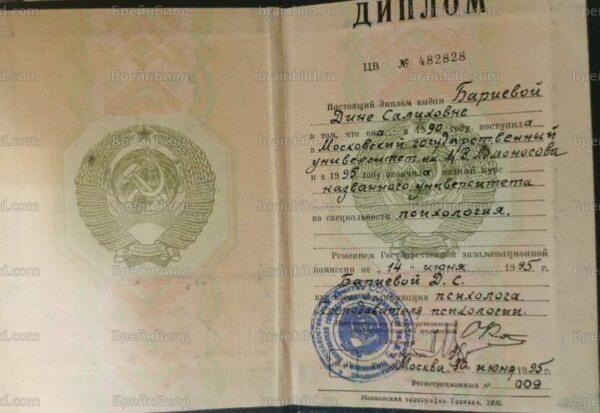 ДИПЛОМ
ЦВ № 482828
Настоящий диплом выдан Бариевой
Дине Салиховне
в том, что она в 1990 году поступила
в Московский государственный
университет им. М.В. Ломоносова
и в 1995 году окончила полный курс
названного университета
по специальности психология.
Решением Государственной экзаменационной
комиссии от 14 июня 1995 г.
Бариевой Д. С.
квалификация психолога.
преподавателя психологии.
Москва, 30 июня 1995 г.
Регистрационный № 009
Московская типография Гознака, 1990.
БрейнБилд
brainbild.ru
brainbild.com